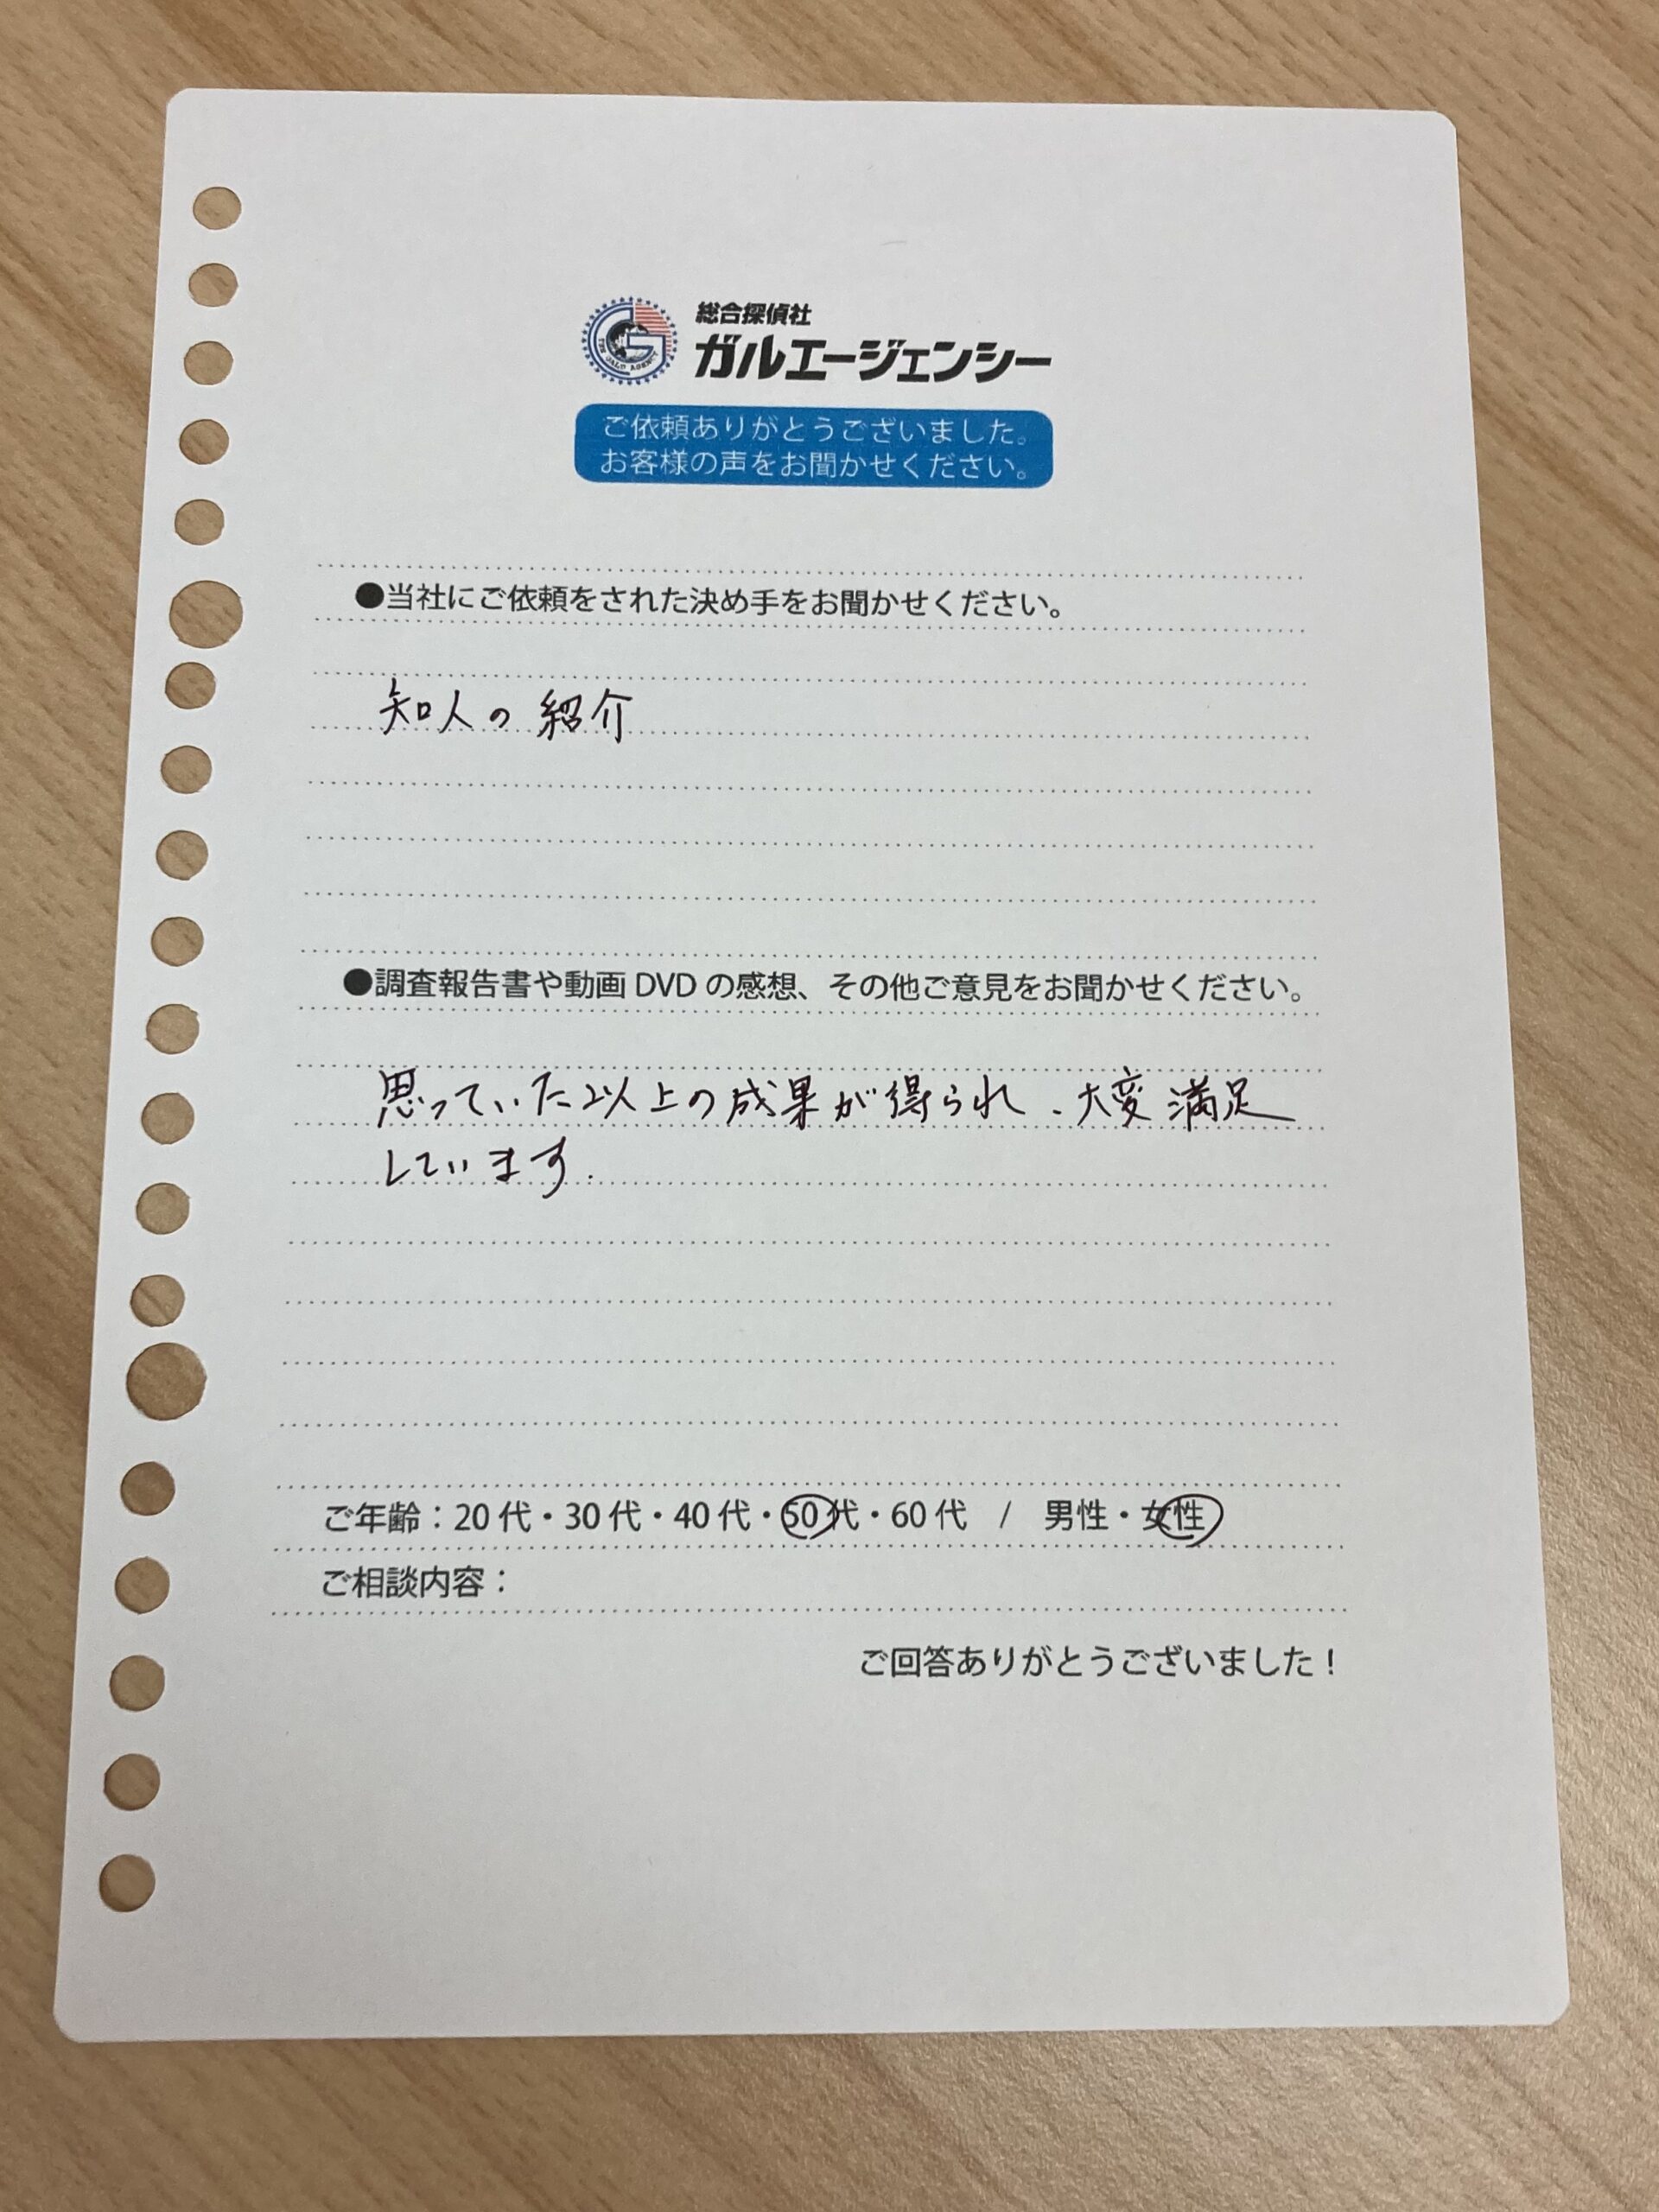 総合探偵社
ガルエージェンシー
THE GALU AGENCY
ご依頼ありがとうございました。
お客様の声をお聞かせください。
●当社にご依頼をされた決め手をお聞かせください。
知人の紹介
●調査報告書や動画 DVD の感想、その他ご意見をお聞かせください。
思っていた以上の成果が得られ、大変満足
しています.
ご年齢：20 代・30 代・40 代・50 代・60 代 / 男性・女性
ご相談内容：
ご回答ありがとうございました！